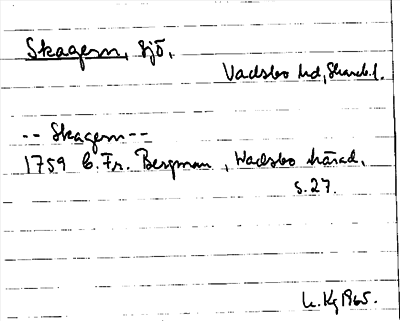 Skagern, sjö.
Vadsbo hd, Skarab. l.
-- Skagern --
1759 C. Fr. Bergman, Wadsbo härad,
s. 27.
L. Kg 1965.